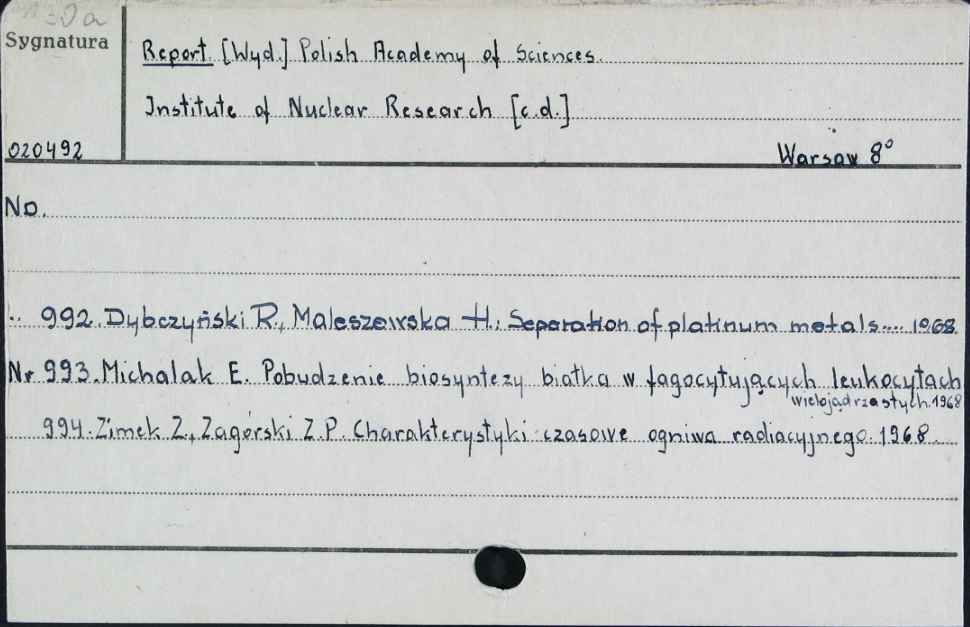 Sygnatura
Report [Wyd.] Polish Academy of Sciences.
Institute of Nuclear Research [c.d.]
020492
Warsaw 8°
No.
992. Dybczyński R., Maleszewska H.: Separation of platinum metals.... 1968.
Nr 993. Michalak E. Pobudzenie biosyntezy białka w fagocytujących leukocytach
wielojądrzastych. 1968
994. Zimek Z., Zagórski Z.P. Charakterystyki czasowe ogniwa radiacyjnego. 1968.